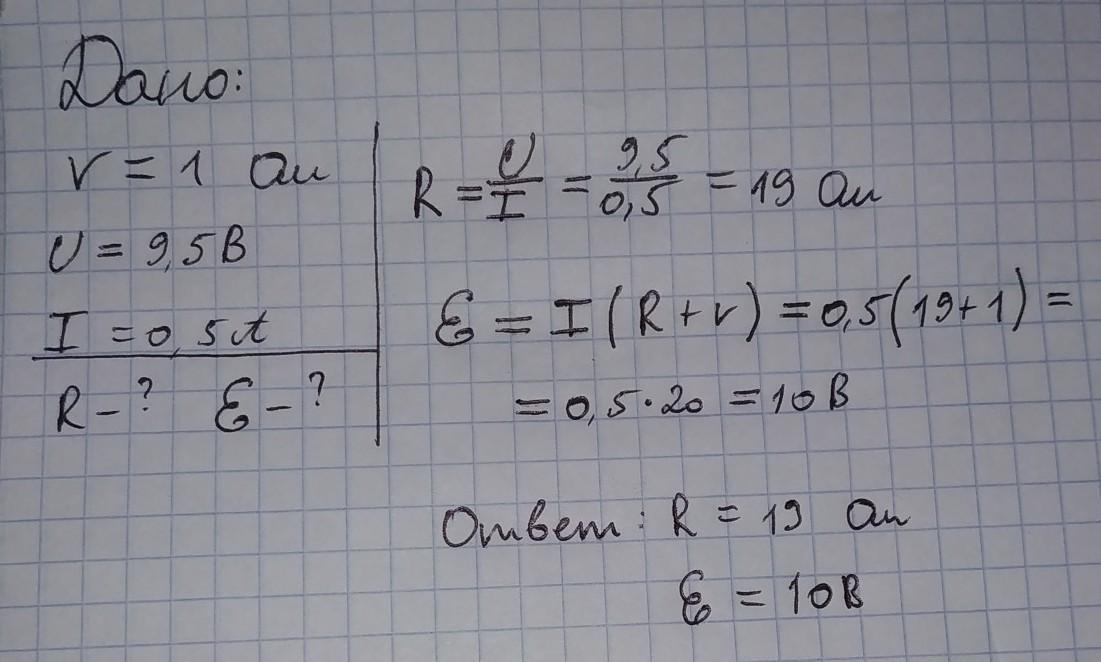 Дано:
r = 1 Ом
U = 9,5 В
I = 0,5 А
R – ? ℰ – ?
R = U/I = 9,5/0,5 = 19 Ом
ℰ = I (R + r) = 0,5 (19 + 1) =
= 0,5 · 20 = 10 В
Ответ: R = 19 Ом
ℰ = 10 В